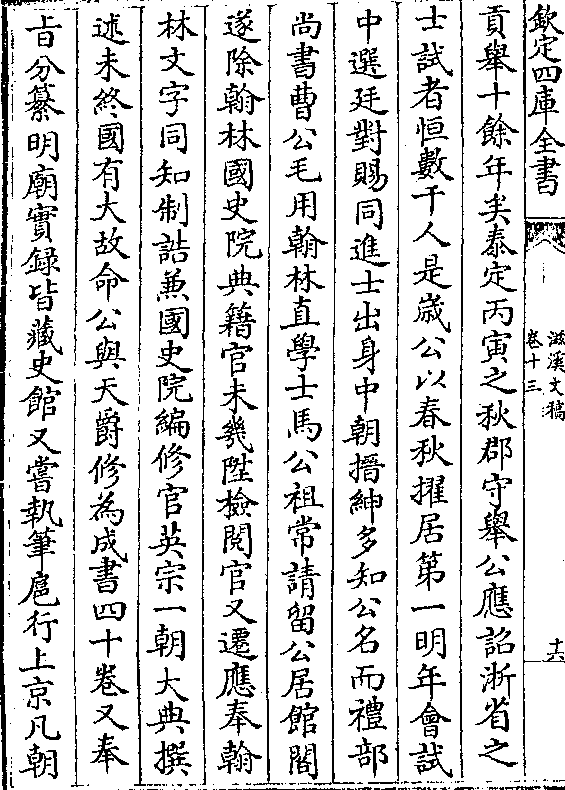 欽定四庫全書
滋溪文稿
卷十三
十六
貢舉十餘年矣泰定丙寅之秋郡守舉公應詔浙省之
士試者恒數千人是歲公以春秋擢居第一明年會試
中選廷對賜同進士出身中朝搢紳多知公名而禮部
尚書曹公毛用翰林直學士馬公祖常請留公居館閣
遂除翰林國史院典籍官未幾陞檢閱官又遷應奉翰
林文字同知制誥兼國史院編修官英宗一朝大典撰
述未終國有大故命公與天爵修為成書四十卷又奉
㫖分纂明廟實録皆藏史館又嘗執筆扈行上京凡朝